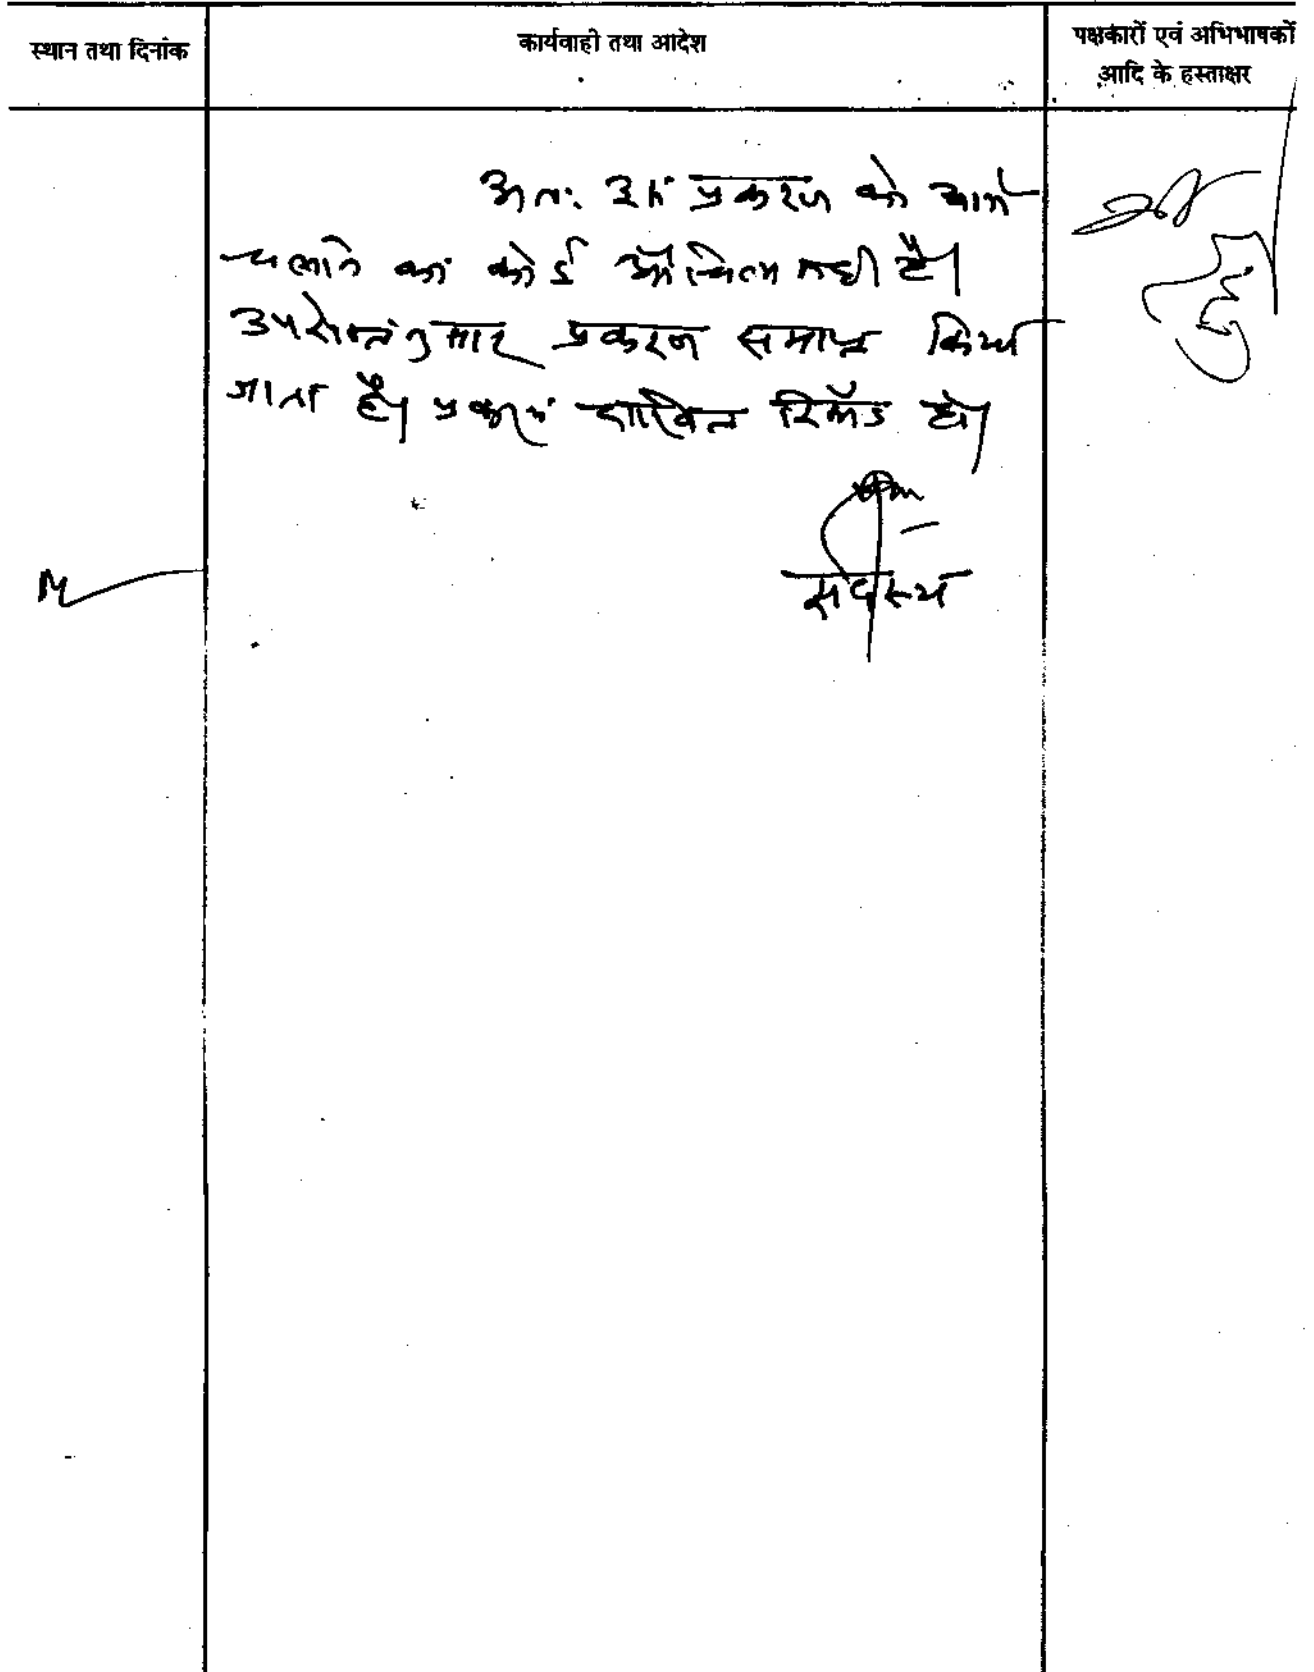 स्थान तथा दिनांक
कार्यवाही तथा आदेश
पक्षकारों एवं अभिभाषकों
आदि के हस्ताक्षर
अतः इस प्रकरण को आगे
चलाने का कोई औचित्य नही है।
उपरोक्तानुसार प्रकरण समाप्त किया
जाता है। प्रकरण दाखिल रिकॉर्ड हो।
सदस्य